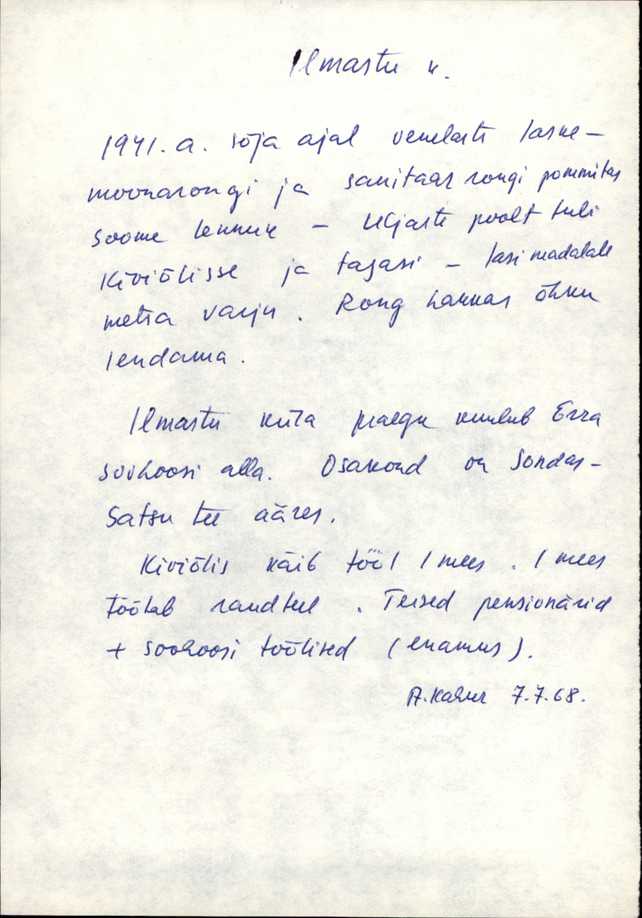 Ilmastu k.
1941. a. sõja ajal venelaste laske-
moonarongi ja sanitaar rongi pommitas
Soome lennuk – Uljaste poolt tuli
Kiviõlisse ja tagasi – lasi madalale
metsa varju. Rong hakkas õhku
lendama.
Ilmastu küla praegu kuulub Erra
sovhoosi alla. Osakond on Sondas-
Satsu tee ääres.
Kiviõlis käib tööl 1 mees. 1 mees
töötab raudteel. Teised pensionärid
+ sovhoosi töölised (enamus).
7.7.68.